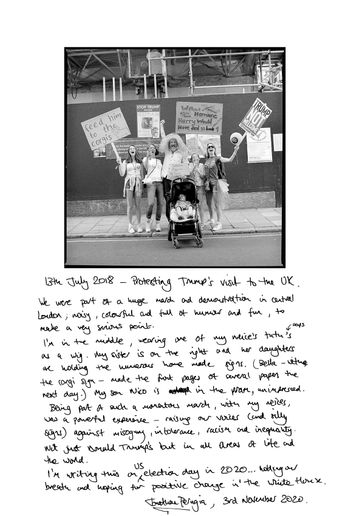 feed him to the corgis
STOP TRUMP
Without Hermione Harry Would Have died in book 1
TRUMP NOT
13th July 2018 – Protesting Trump's visit to the UK.
We were part of a huge march and demonstration in central
London, noisy, colourful and full of humour and fun, to
make a very serious point.
I'm in the middle, wearing one of my neice's tutu's
as a wig. My sister is on the right and her daughters
are holding the humorous home made signs. (Bella – with
the corgi sign – made the front pages of several papers the
next day.) My son Nico is in the pram, unimpressed.
Being part of such a momentous march, with my neices,
was a powerful experience – raising our voices (and silly
signs) against misogyny, intolerance, racism and inequality.
Not just Donald Trump's but in all areas of life and
the world.
I'm writing this on US election day in 2020... holding our
breath and hoping for positive change in the White House.
3rd November 2020.